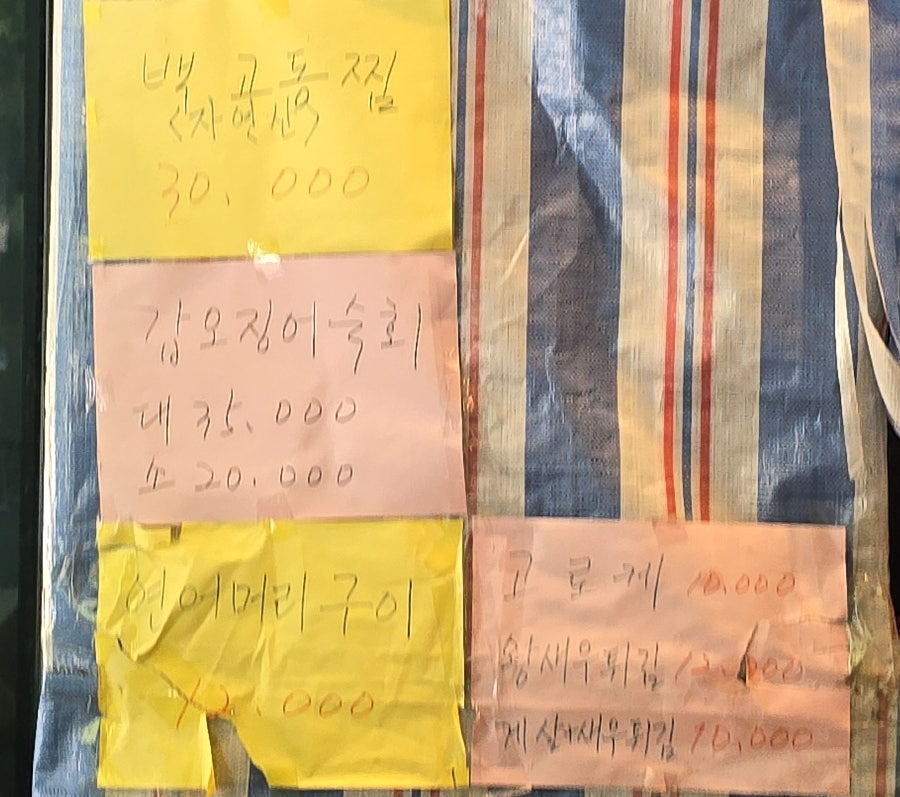 백고동찜
(자연산)
30.000
갑오징어숙회
대 35.000
소 20.000
연어머리구이
12.000
고로케 10.000
왕새우튀김 12.000
게살+새우튀김 10.000